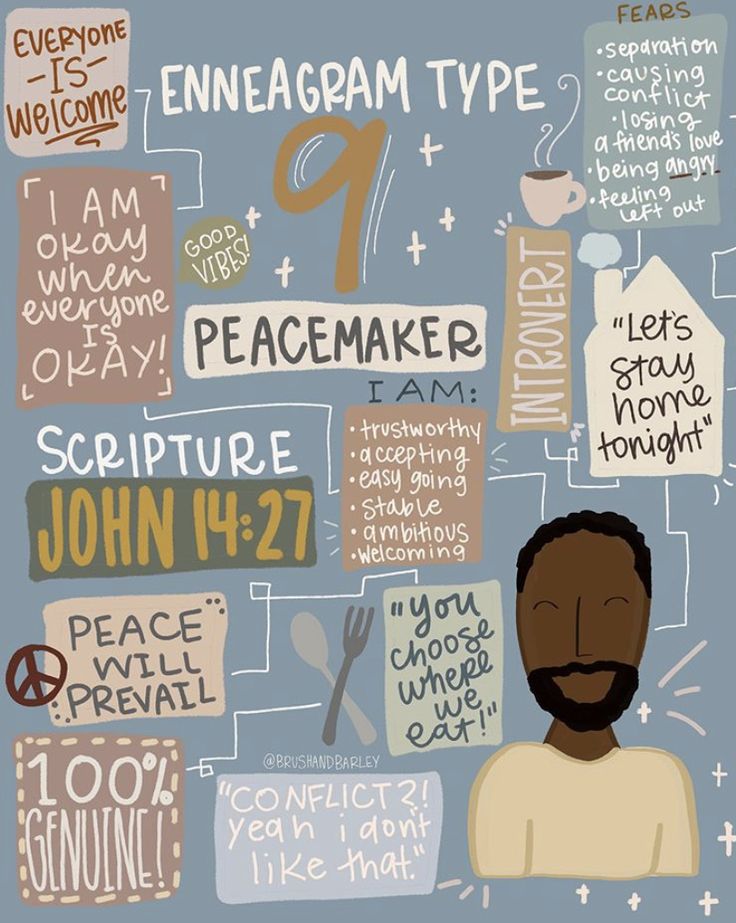 EVERYONE
-IS-
Welcome
ENNEAGRAM TYPE
9
PEACEMAKER
FEARS
• separation
• causing
conflict
• losing
a friend's love
• being angry
• feeling
left out
I AM
okay
when
everyone
IS
OKAY!
GOOD
VIBES!
INTROVERT
"Let's
stay
home
tonight"
I AM:
• trustworthy
• accepting
• easy going
• stable
• ambitious
• welcoming
SCRIPTURE
JOHN 14:27
PEACE
WILL
PREVAIL
"you
choose
where
we
eat!"
100%
GENUINE!
@BRUSHANDBARLEY
"CONFLICT?!
yeah i don't
like that."